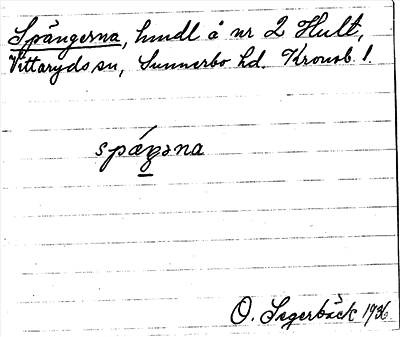 Spångerna, hmdl å nr 2 Hult,
Vittaryds sn, Sunnerbo hd. Kronob. l.
spágəna
O. Segerbäck 1936